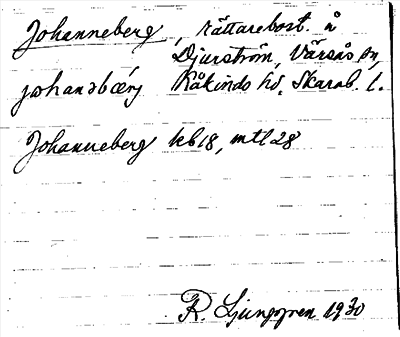 Johanneberg, rättarebost. å
Djurström, Värsås sn,
johanəbærj Kåkinds hd, Skarab. l.
Johanneberg kb18, mtl 28
R. Ljunggren 1930